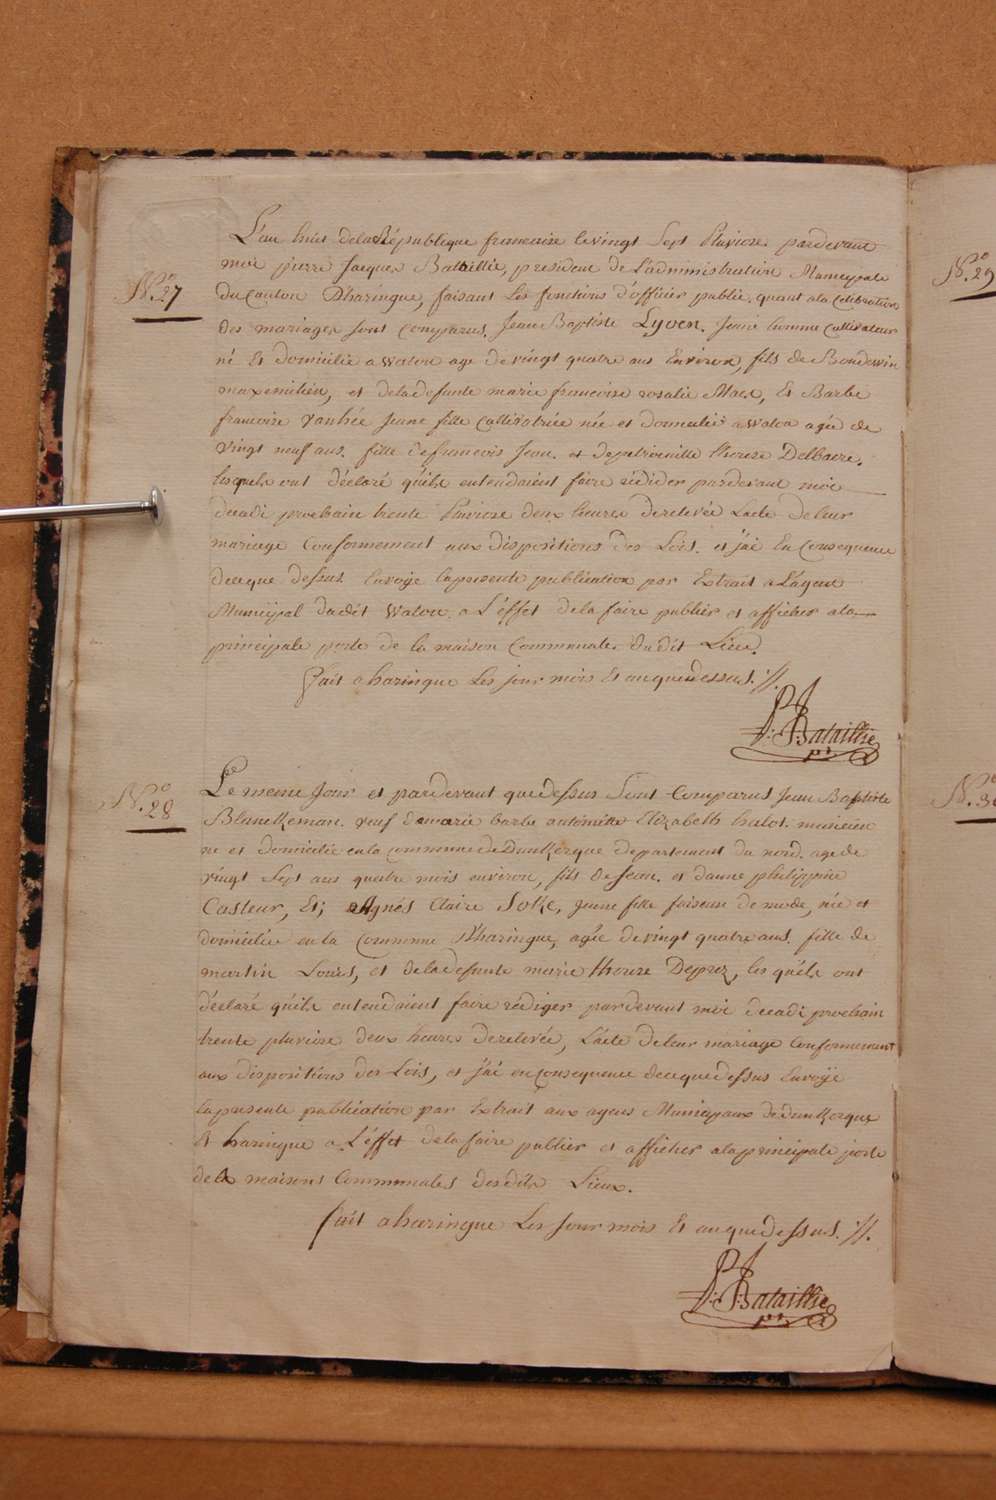 L'an huit dela République francoise le vingt Sept Pluviose pardevant
N.° 27
moi pierre Jacques Bataillie, president de L'administration Municipale
du Canton D'haringue, faisant Les fonctions d'officier public, quant ala Celebration
des mariages sont Comparus, Jean Baptiste Lyoen, Jeune homme Cultivateur
né Et domicilié a watou age de vingt quatre ans Environ, fils de Boudewin
maxemilien, et dela defunte marie francoise rosalie Maes, Et Barbe
francoise vanhée Jeune fille Cultivatrice née et domiciliée a watou agée de
vingt neuf ans. fille de francois Jean. et de petronille therese Delbaere,
lesquels ont déclaré qu'ils entendoient faire rédiger pardevant moi
decadi prochain trente Pluviose deux heures de relevée Lacte de leur
mariage Conformement aux dispositions des Lois. et j'ai En Consequence
dece que dessus. Envoÿé la presente publication par Extrait a L'agent
Municipal dudit watou. a L'éffet de la faire publier et afficher ala
principale porte de la maison Communale du dit Lieu.
Fait a haringue Les jour mois Et an que dessus. //.
P: J: Bataillie
pt.
N.° 29
N.° 28
Le meme Jour et pardevant que dessus Sont Comparus Jean Baptiste
Blanckeman. veuf de marie barbe antoinette Elizabeth halot. musicien
ne et domicilie en la commune de Dunkerque departement du nord. age de
vingt Sept ans quatre mois environ, fils de Jean. et danne philippine
Casteur, Et; Agnés Claire Soke, Jeune fille faiseuse de mode, née et
domiciliée en la Commune D'haringue, agée de vingt quatre ans. fille de
martin Louis, et dela defunte marie therese Deprez, les quels ont
déclaré qu'ils entendoient faire rediger pardevant moi decadi prochain
trente pluviose deux heures de relevée, L'acte de leur mariage Conformement
aux dispositions des Lois, et j'ai en consequence dece que dessus Envoÿé
la presente publication par Extrait aux agens Municipaux de dunkerque
Et haringue a L'éffet de la faire publier et afficher ala principale porte
de la maisons Communales desdits Lieux.
fait a haringue Les Jour mois Et an que dessus. //.
P: J: Bataillie
pt.
N.° 30